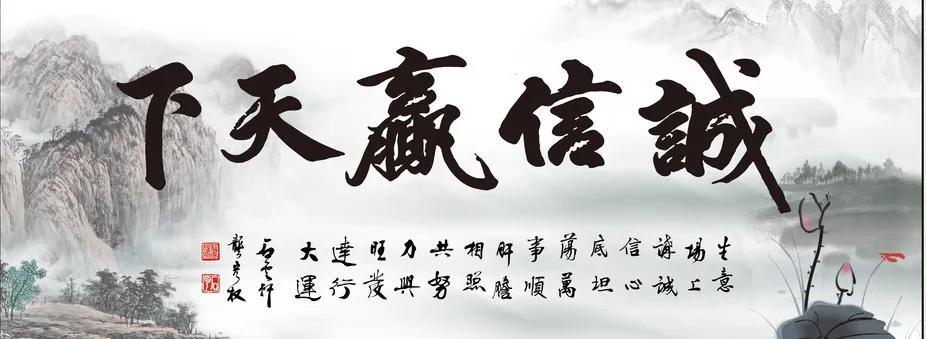 誠信贏天下
生意
場上
講誠
信心
底坦
蕩萬
事順
肝膽
相照
共努
力興
旺發
達行
大運